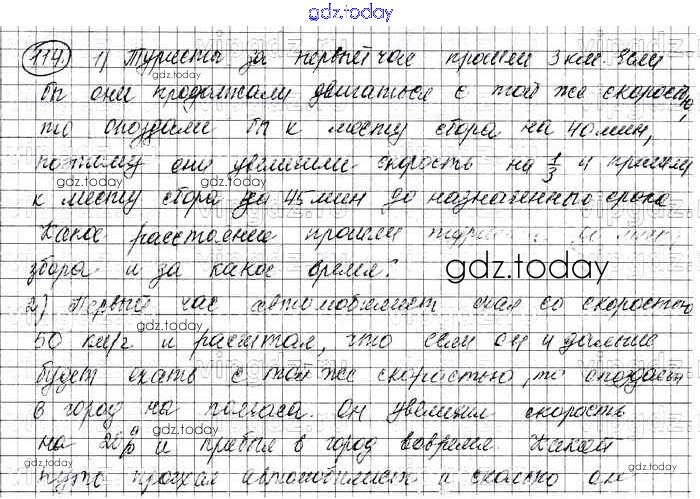 gdz.today
114. 1) Туристы за первый час прошли 3 км. Если
бы они продолжали двигаться с той же скоростью,
то опоздали бы к месту сбора на 40 мин,
поэтому они увеличили скорость на 1/3 и пришли
к месту сбора за 45 мин до назначенного срока
Какое расстояние прошли
збора и за какое время?
2) Первый час автомобилист ехал со скоростью
50 км/г и рассчитал, что если он и дальше
будет ехать с той же скоростью, то опоздает
в город на полчаса. Он увеличил скорость
на 20% и прибыл в город вовремя. Какой
путь проехал автомобилист и сколько он
gdz.today
gdz.today
gdz.today
gdz.today
gdz.today
gdz.today
gdz.today
gdz.today
gdz.today